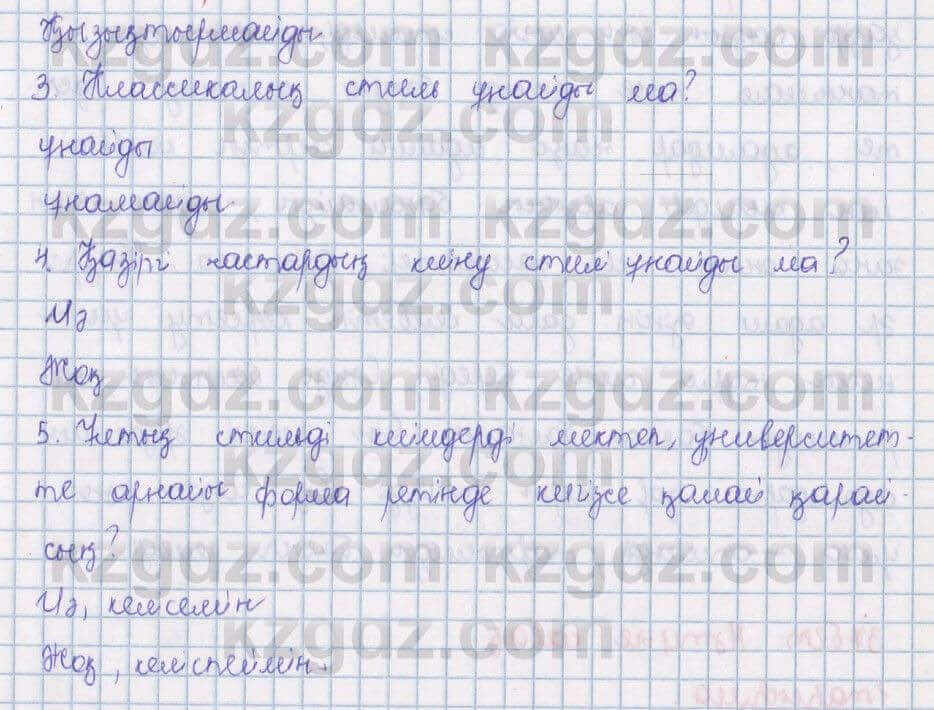 Қызықтырмайды
3. Классикалық стиль ұнайды ма?
ұнайды
ұнамайды
4. Қазіргі жастардың киіну стилі ұнайды ма?
Иә
Жоқ
5. Ұлттық стильді киімдерді мектеп, университет-
те арнайы форма ретінде кигізсе қалай қарай-
сың?
Иә, келісемін
Жоқ, келіспеймін.
kzgdz.com